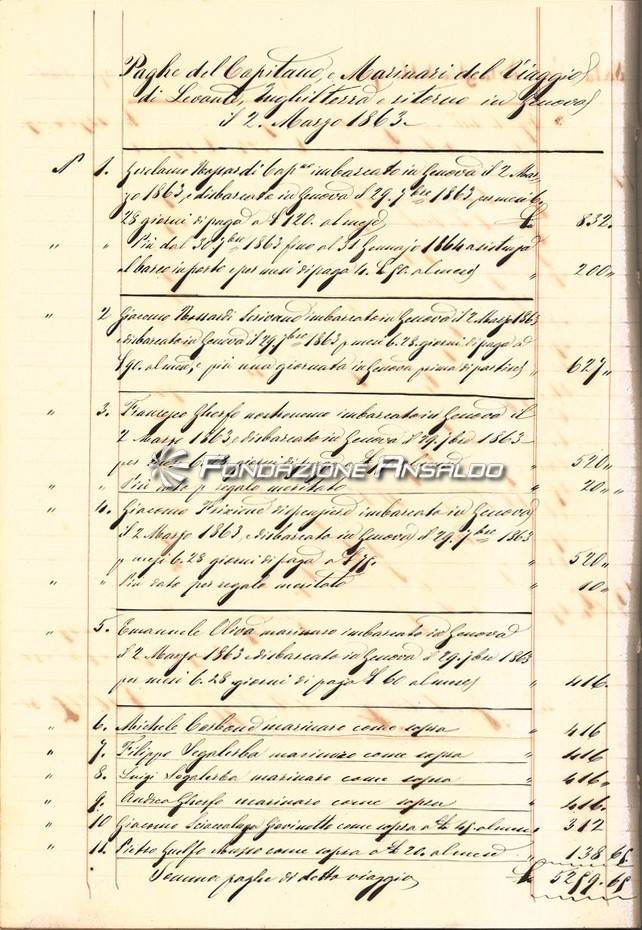 Paghe del Capitano, e Marinari del Viaggio
di Levante, Inghilterra e ritorno in Genova
il 2. Marzo 1863.
N° 1. imbarcato in Genova il 2 Mar-
zo 1863, e disbarcato in Genova il 29. 7bre 1863 per mesi 6.
28 giorni di paga a £ 120. al mese £ 832.
" " Più dal 30 7bre 1863 fino al 31 Gennajo 1864 assistenza
al barco in porto e per mesi di paga 4. £ 50. al mese " 200 "
" 2 Giacomo Scrivano imbarcato in Genova il 2 Marzo 1863
e disbarcato in Genova il 29. 7bre 1863 p mesi 6. 28. giorni di paga a
£ 90. al mese, e più una giornata in Genova prima di partire " 627 "
" 3. Francesco Gherfo nostromo imbarcato in Genova il
2 Marzo 1863 e disbarcato in Genova il 29. 7bre 1863
per mesi 6. 28 giorni di paga " 520 "
FONDAZIONE ANSALDO
" " Più dato p regalo meritato " 20 "
" 4. Giacomo dispensiere imbarcato in Genova
il 2 Marzo 1863, e disbarcato in Genova il 29. 7bre 1863
p mesi 6. 28 giorni di paga a £ 75. " 520 "
" " Più dato per regalo meritato " 10 "
" 5. Emanuele Oliva marinaro imbarcato in Genova
il 2 Marzo 1863 e disbarcato in Genova il 29. 7bre 1863
per mesi 6. 28 giorni di paga £ 60 al mese " 416.
" 6. Michele Carbone marinaro come sopra " 416
" 7. Filippo Segalerba marinaro come sopra " 416
" 8. Luigi Segalerba marinaro come sopra " 416 "
" 9. Andrea Gherfo marinaro come sopra " 416.
" 10 Giacomo Giovinotto come sopra a £ 45. al mese 312
" 11. Pietro Gulfo Musso come sopra a £ 20. al mese " 138 65
Somma paghe di detto viaggio £ 5259. 65